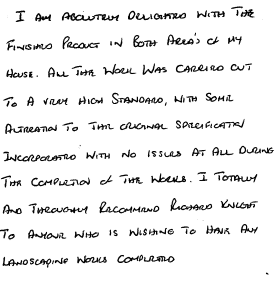 I AM ABSOLUTELY DELIGHTED WITH THE
FINISHED PRODUCT IN BOTH AREA'S OF MY
HOUSE. ALL THE WORK WAS CARRIED OUT
TO A VERY HIGH STANDARD, WITH SOME
ALTERATION TO THE ORIGINAL SPECIFICATION
INCORPORATED WITH NO ISSUES AT ALL DURING
THE COMPLETION OF THE WORKS. I TOTALLY
AND THOROUGHLY RECOMMEND RICHARD KNIGHT
TO ANYONE WHO IS WISHING TO HAVE ANY
LANDSCAPING WORKS COMPLETED